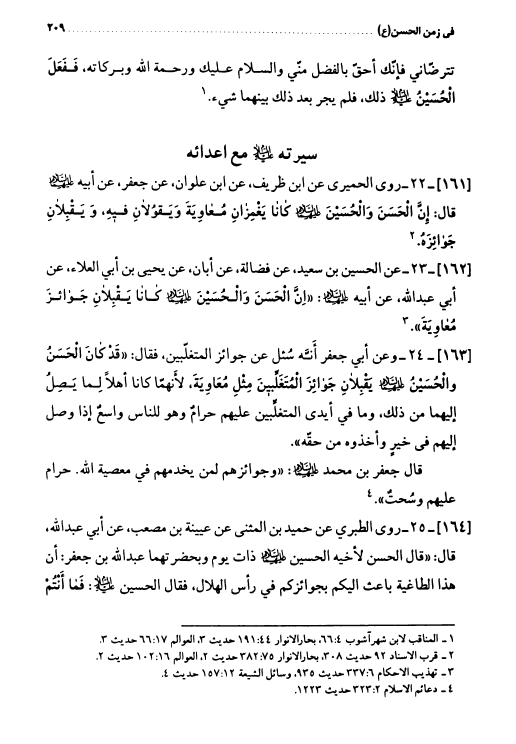 فى زمن الحسن(ع) ........................................ ٢٠٩
تترضّاني فإنّك أحقّ بالفضل منّي والسلام عليك ورحمة الله وبركاته، فَـفَعَلَ
الْحُسَيْنُ ذلك، فلم يجر بعد ذلك بينهما شيء.١
سيرته مع اعدائه
[١٦١] ـ ٢٢ـ روى الحميرى عن ابن ظريف، عن ابن علوان، عن جعفر، عن أبيه
قال: إِنَّ الْحَسَنَ وَالْحُسَيْنَ كَانَا يَغْمِزَانِ مُـعَاوِيَةَ وَيَـقُولَانِ فـيهِ، وَ يَـقْبِلَانِ
جَوَائِزَهُ.٢
[١٦٢] ـ ٢٣ـ عن الحسين بن سعيد، عن فضالة، عن أبان، عن يحيى بن أبي العلاء، عن
أبي عبدالله، عن أبيه : «اِنَّ الْحَسَنَ وَالْـحُسَيْنَ كَـانَا يَـقْبِلَانِ جَـوَائِـزَ
مُعَاوِيَةَ».٣
[١٦٣] ـ ٢٤ ـ وعن أبي جعفر أَنّـه سُئل عن جوائز المتغلّبين، فقال: «قَدْ كَانَ الْحَسَنُ
والْحُسَيْنُ يَقْبِلَانِ جَوَائِزَ الْمُتَغَلِّبِينَ مِثْلِ مُعَاوِيَةَ، لأنهما كانا أهلاً لِـما يَـصِلُ
إليهما من ذلك، وما في أيدى المتغلّبين عليهم حرامٌ وهو للناس واسعٌ إذا وصل
إليهم فى خيرٍ وأخذوه من حقّه».
قال جعفر بن محمد : «وجوائزهم لمن يخدمهم في معصية الله. حرام
عليهم وسُحتٌ».٤
[١٦٤] ـ ٢٥ ـ روى الطبري عن حميد بن المثنى عن عيينة بن مصعب، عن أبي عبدالله،
قال: «قال الحسن لأخيه الحسين ذات يوم وبحضرتهما عبدالله بن جعفر: أن
هذا الطاغية باعث اليكم بجوائزكم في رأس الهلال، فقال الحسين : فَمَا أَنْتُمْ
١ ـ المناقب لابن شهرآشوب ٦٦:٤، بحارالانوار ١٩١:٤٤ حديث ٣، العوالم ٦٦:١٧ حديث ٣.
٢ ـ قرب الاسناد ٩٢ حديث ٣٠٨، بحارالانوار ٣٨٢:٧٥ حديث ٢، العوالم ١٠٢:١٦ حديث ٢.
٣ ـ تهذيب الاحكام ٣٣٧:٦ حديث ٩٣٥، وسائل الشيعة ١٥٧:١٢ حديث ٤.
٤ ـ دعائم الاسلام ٣٢٣:٢ حديث ١٢٢٣.